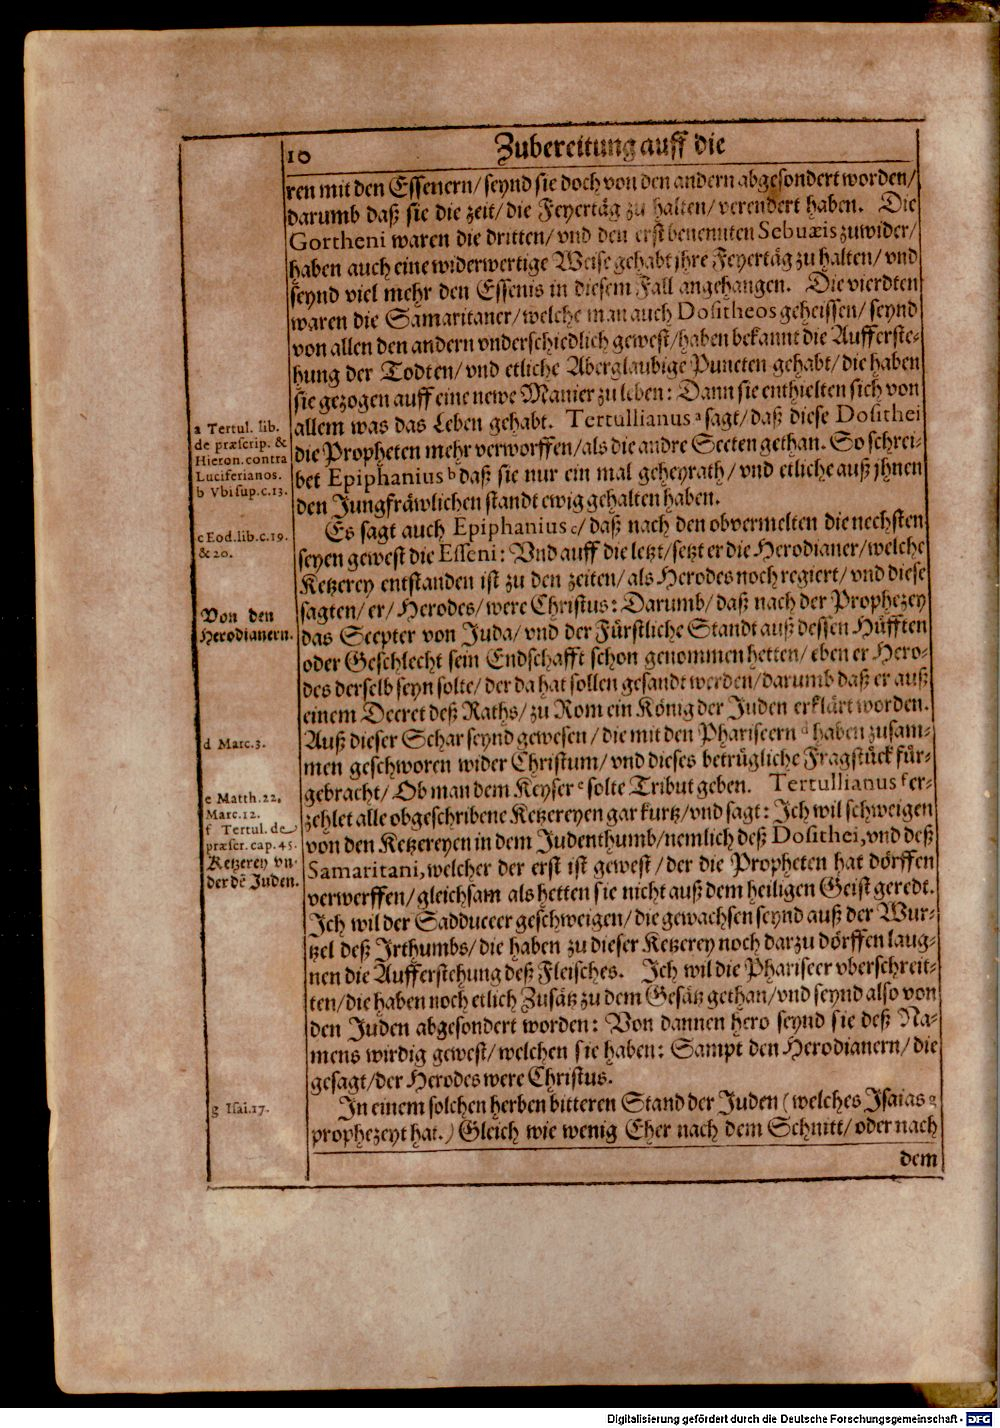 10
Zubereitung auff die
ren mit den Essenern/ seynd sie doch von den andern abgesondert worden/
darumb daß sie die zeit/ die Feyertäg zu halten/ verendert haben. Die
Gortheni waren die dritten/ vnd den erst benennten Sebuæis zuwider/
haben auch eine widerwertige Weise gehabt jhre Feyertäg zu halten/ vnd
seynd viel mehr den Essenis in diesem Fall angehangen. Die vierdten
waren die Samaritaner/ welche man auch Dositheos geheissen/ seynd
von allen den andern vnderschiedlich gewest/ haben bekannt die Aufferste-
hung der Todten/ vnd etliche Aberglaubige Puncten gehabt/ die haben
sie gezogen auff eine newe Manier zu leben: Dann sie enthielten sich von
allem was das Leben gehabt. Tertullianus a sagt/ daß diese Dosithei
die Propheten mehr verworffen/ als die andre Secten gethan. So schrei-
bet Epiphanius b daß sie nur ein mal geheyrath/ vnd etliche auß jhnen
den Jungfräwlichen standt ewig gehalten haben.
Es sagt auch Epiphanius c/ daß nach den obvermelten die nechsten
seyen gewest die Esseni: Vnd auff die letzt/ setzt er die Herodianer/ welche
Ketzerey entstanden ist zu den zeiten/ als Herodes noch regiert/ vnd diese
sagten/ er/ Herodes/ were Christus: Darumb/ daß nach der Prophezey
das Scepter von Juda/ vnd der Fürstliche Standt auß dessen Hüfften
oder Geschlecht sein Endschafft schon genommen hetten/ eben er Hero-
des derselb seyn solte/ der da hat sollen gesandt werden/ darumb daß er auß
einem Decret deß Raths/ zu Rom ein König der Juden erklärt worden.
Auß dieser Schar seynd gewesen/ die mit den Phariseern d haben zusam-
men geschworen wider Christum/ vnd dieses betrügliche Fragstück für-
gebracht/ Ob man dem Keyser e solte Tribut geben. Tertullianus f er-
zehlet alle obgeschribene Ketzereyen gar kurtz/ vnd sagt: Ich wil schweigen
von den Ketzereyen in dem Judenthumb/ nemlich deß Dosithei, vnd deß
Samaritani, welcher der erst ist gewest/ der die Propheten hat dörffen
verwerffen/ gleichsam als hetten sie nicht auß dem heiligen Geist geredt.
Ich wil der Sadduceer geschweigen/ die gewachsen seynd auß der Wur-
tzel deß Irthumbs/ die haben zu dieser Ketzerey noch darzu dörffen laug-
nen die Aufferstehung deß Fleisches. Ich wil die Phariseer vberschreit-
ten/ die haben noch etlich Zusätz zu dem Gesätz gethan/ vnd seynd also von
den Juden abgesondert worden: Von dannen hero seynd sie deß Na-
mens wirdig gewest/ welchen sie haben: Sampt den Herodianern/ die
gesagt/ der Herodes were Christus.
In einem solchen herben bitteren Stand der Juden (welches Isaias g
prophezeyt hat.) Gleich wie wenig Eher nach dem Schnitt/ oder nach
dem
a Tertul. lib.
de præscrip. &
Hieron. contra
Luciferianos.
b Vbi sup. c. 13.
c Eod. lib. c. 19.
& 20.
Von den
Herodianern.
d Marc. 3.
e Matth. 22.
Marc. 12.
f Tertul. de
præscr. cap. 45.
Ketzerey vn-
der dẽ Juden.
g Isai. 17.
Digitalisierung gefördert durch die Deutsche Forschungsgemeinschaft - DFG